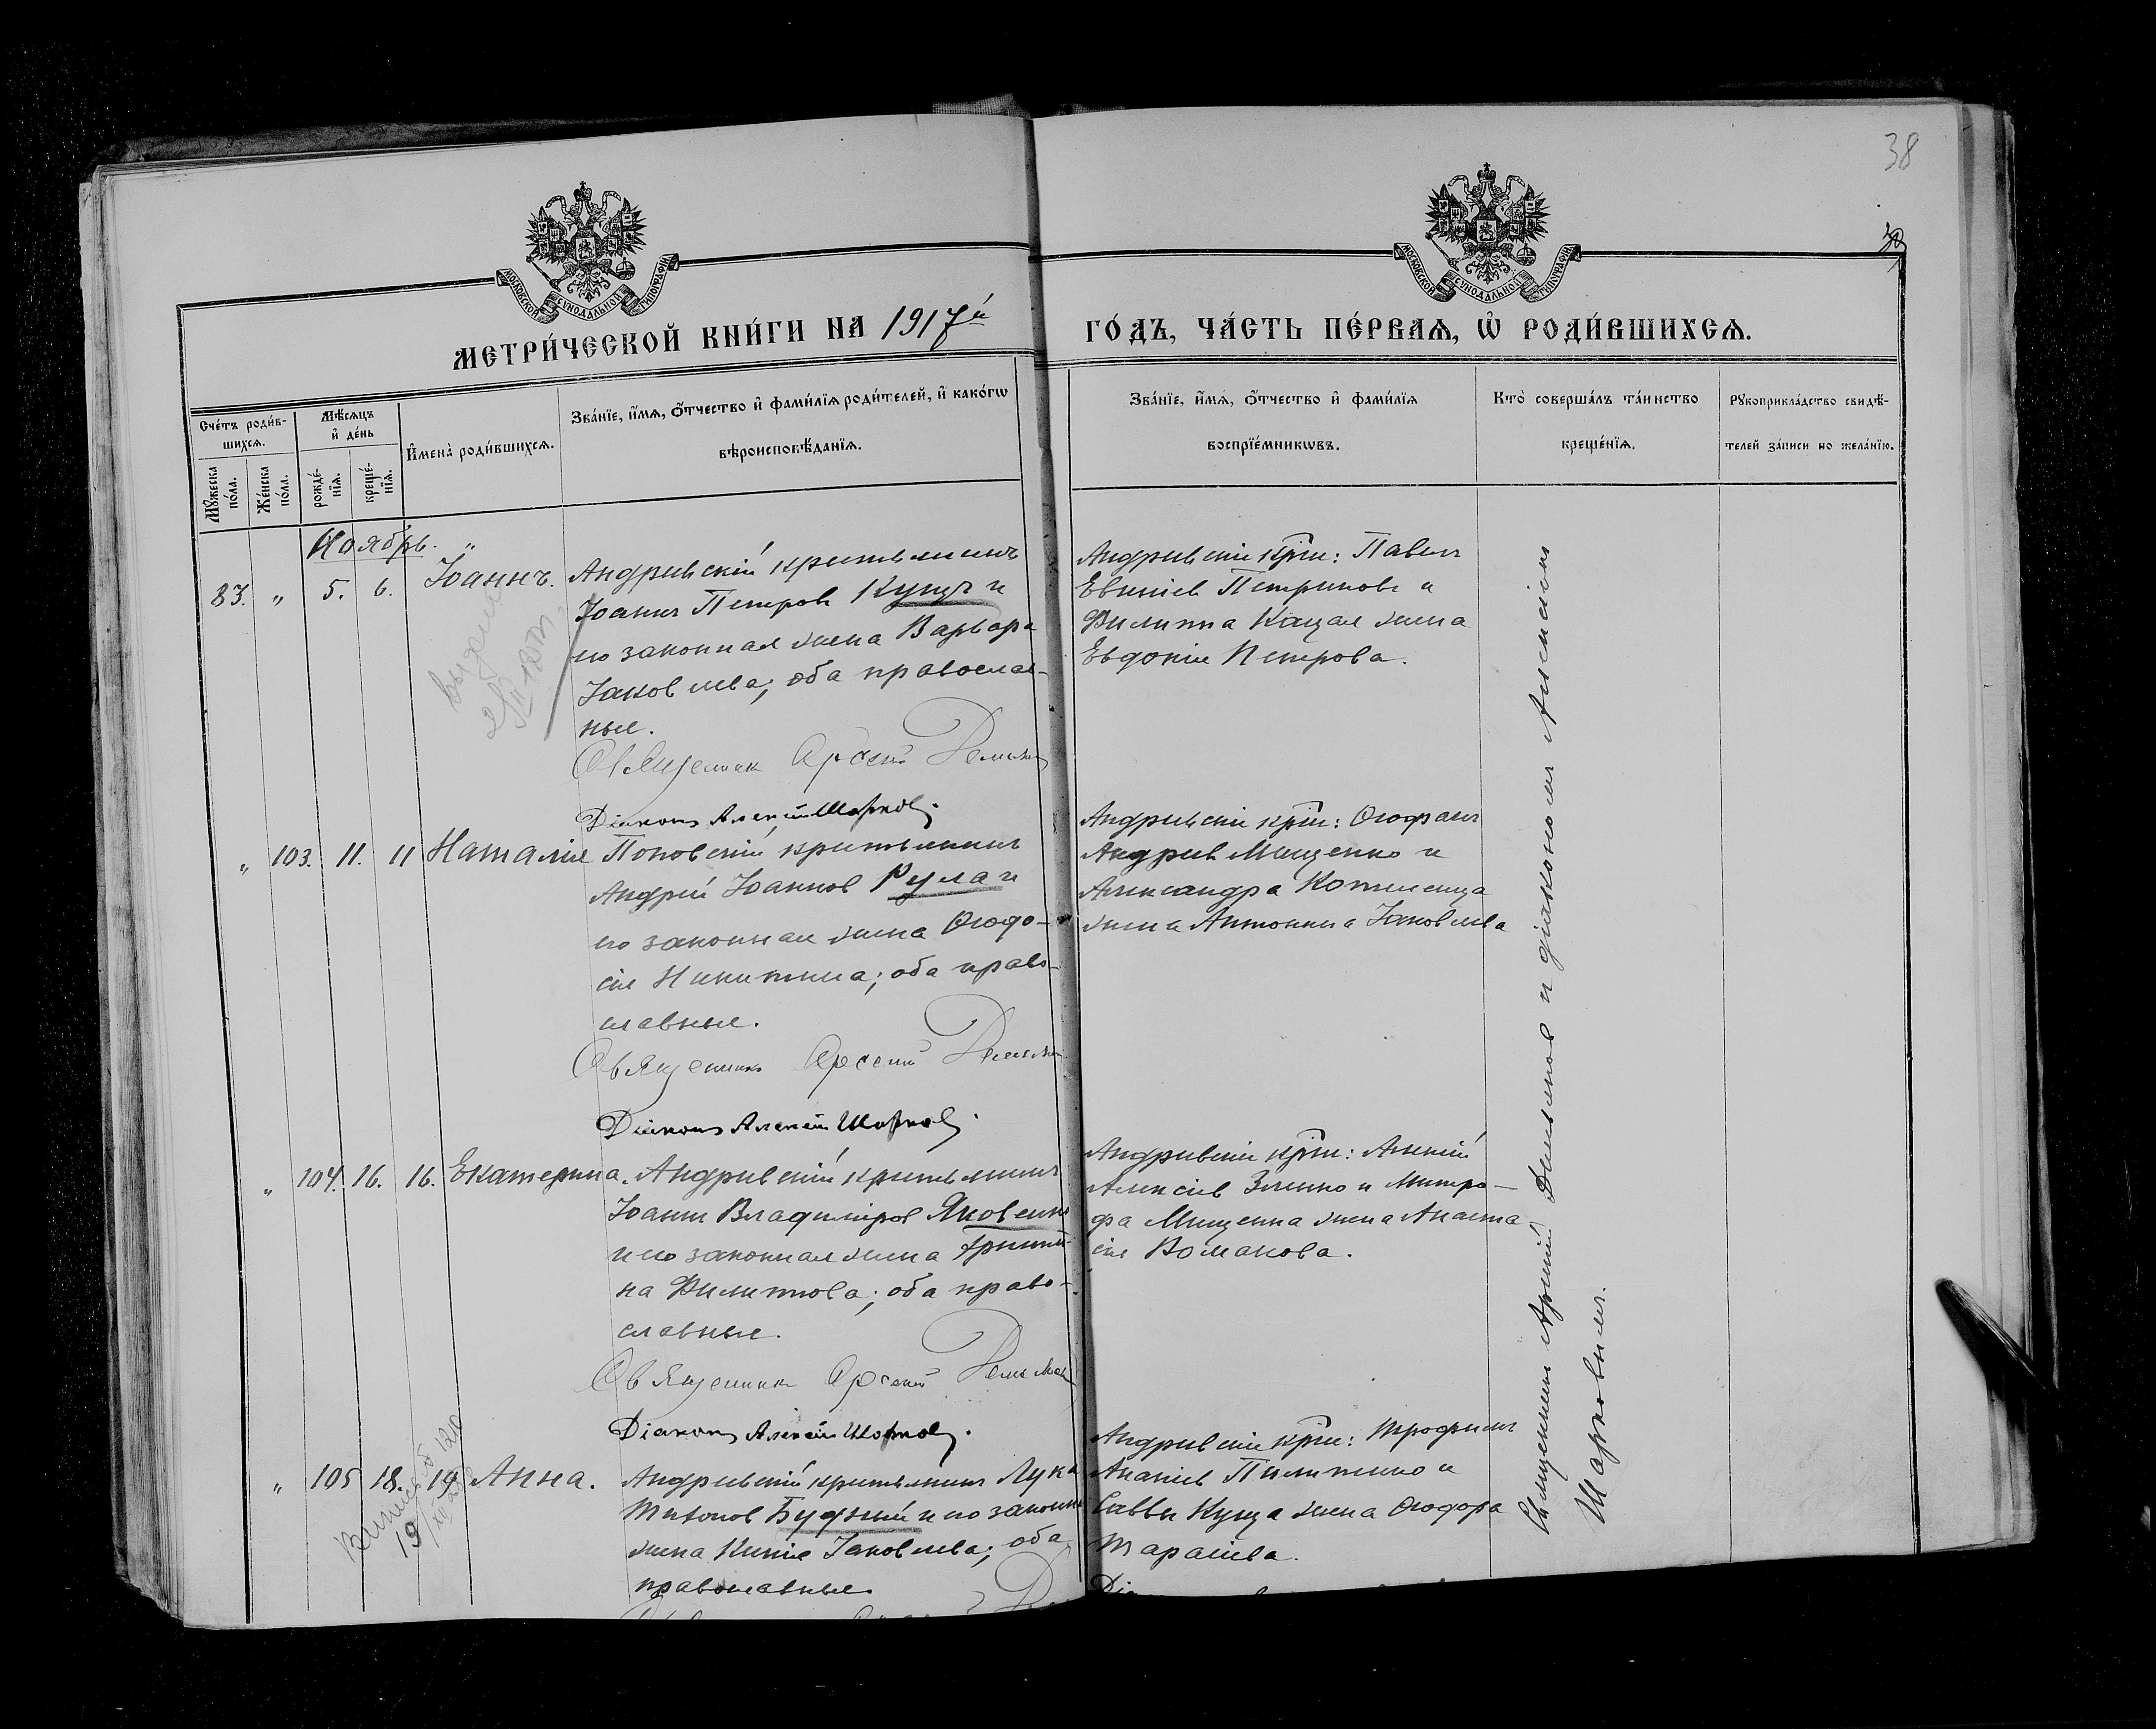 38
МОСКОВСКОЙ СѴНОДАЛЬНОЙ ТИПОГРАФІИ
МОСКОВСКОЙ СѴНОДАЛЬНОЙ ТИПОГРАФІИ
МЕТРИ́ЧЕСКОЙ КНИ́ГИ НА 1917й
ГО́ДЪ, ЧА́СТЬ ПЕ́РВАѦ, Ѡ҆ РОДИ́ВШИХСѦ.
Сче́тъ роди́в-
шихсѧ.
Мѣ́сѧцъ
и҆ де́нь
Мꙋ́жеска
по́ла.
Же́нска
по́ла.
рожде́-
нїѧ.
креще́-
нїѧ.
И҆мена̀ роди́вшихсѧ.
Зва́нїе, и҆́мѧ, ѻ҆́тчество и҆ фами́лїѧ роди́телей, и҆ како́гѡ
вѣроисповѣ́данїѧ.
Зва́нїе, и҆́мѧ, ѻ҆́тчество и҆ фами́лїѧ
воспрїе́мникѡвъ.
Кто̀ соверша́лъ та́инство
креще́нїѧ.
Рꙋкоприкла́дство свидѣ́-
телей за́писи по жела́нїю.
Ноябрь. „
83. „ 5. 6. Іоаннъ.
Андреевскій крестьянинъ
Іоаннъ Петровъ Куцъ и
его законная жена Варвара
Іаковлева; оба православ-
ные.
Священникъ Арсеній
Діаконъ Алексій Шарковъ.
Андреевскіе крест: Павелъ
Евѳиміев и
Филиппа Кацая жена
Евдокія Петрова.
„ 103. 11. 11 Наталія
Поповскій крестьянинъ
Андрей Іоанновъ Рула и
его законная жена Ѳеодо-
сія Никитина; оба право-
славные.
Священникъ Арсеній
Діаконъ Алексій Шарковъ.
Андреевскіе крест: Ѳеофанъ
Андреев Мищенко и
Александра жена Антонина Іаковлева
„ 104. 16. 16. Екатерина.
Андреевскій крестьянинъ
Іоаннъ Владиміровъ Яковенко
и его законная жена
на Филиппова; оба право-
славные.
Священникъ Арсеній
Діаконъ Алексій Шарковъ.
Андреевскіе крест: Алексій
Алексіев и Митро-
фа Мищенка жена Анаста-
сія
„ 105 18. 19 Анна.
Андреевскій крестьянинъ Лука
Тихоновъ Будный и его законн
жена Ксенія Іаковлева; оба
православные.
Андреевскіе крест: Трофимъ
Ананіев Пилипенко и
Саввы Куца жена Ѳеодора
Тарасіева.
Священникъ Арсеній и діаконом Алексіем
Шарковымъ.